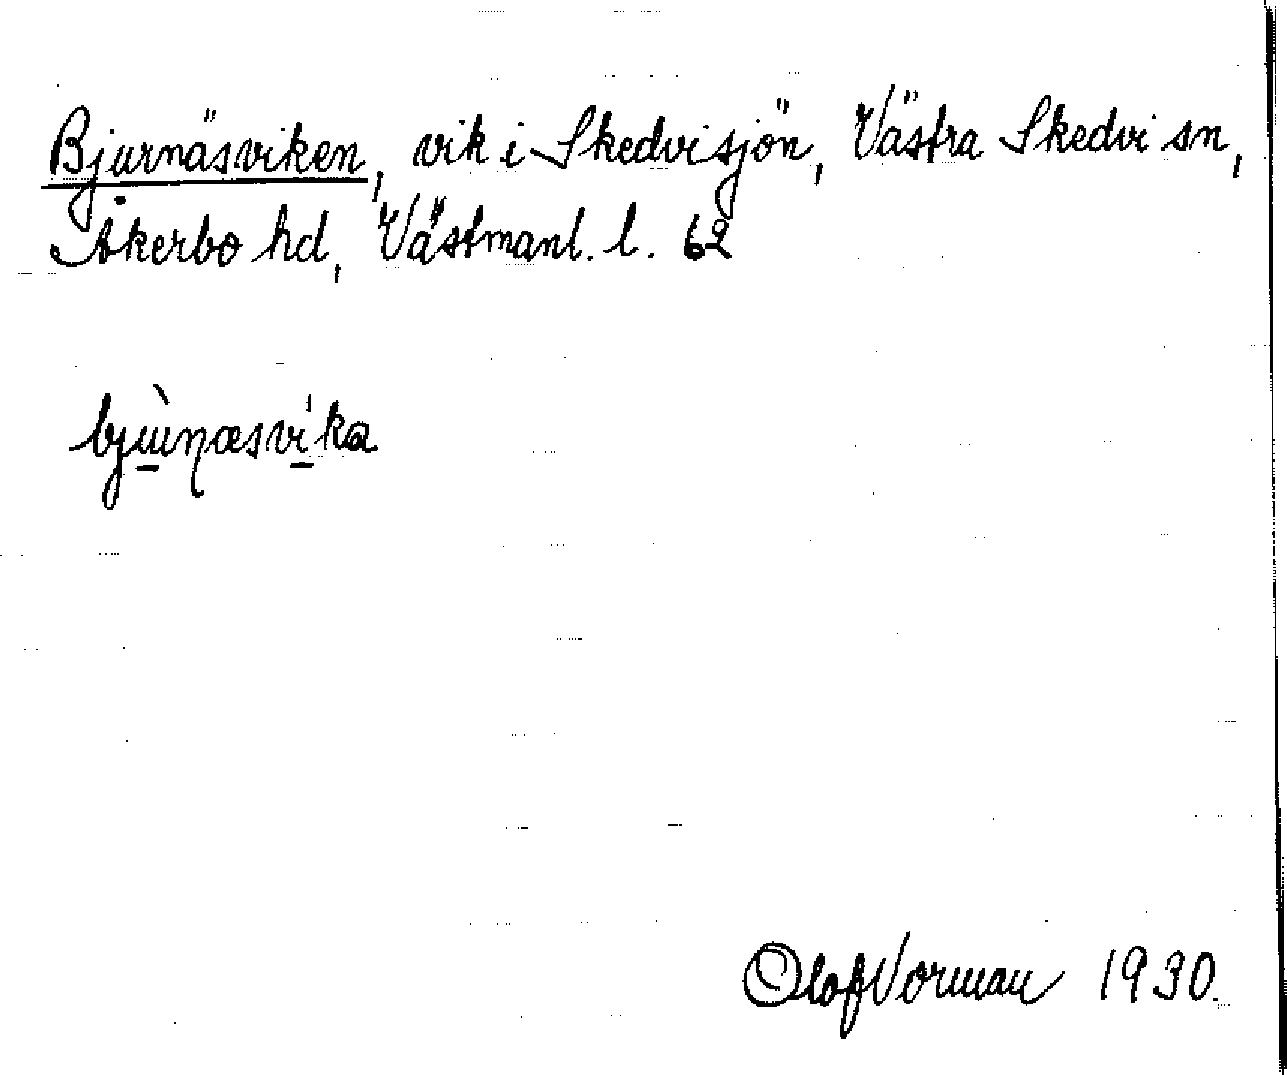 Bjurnäsviken, vik i Skedvisjön, Västra Skedvi sn,
Åkerbo hd, Västmanl. l. 62
bjùɳæsvika
Olof Norman 1930.